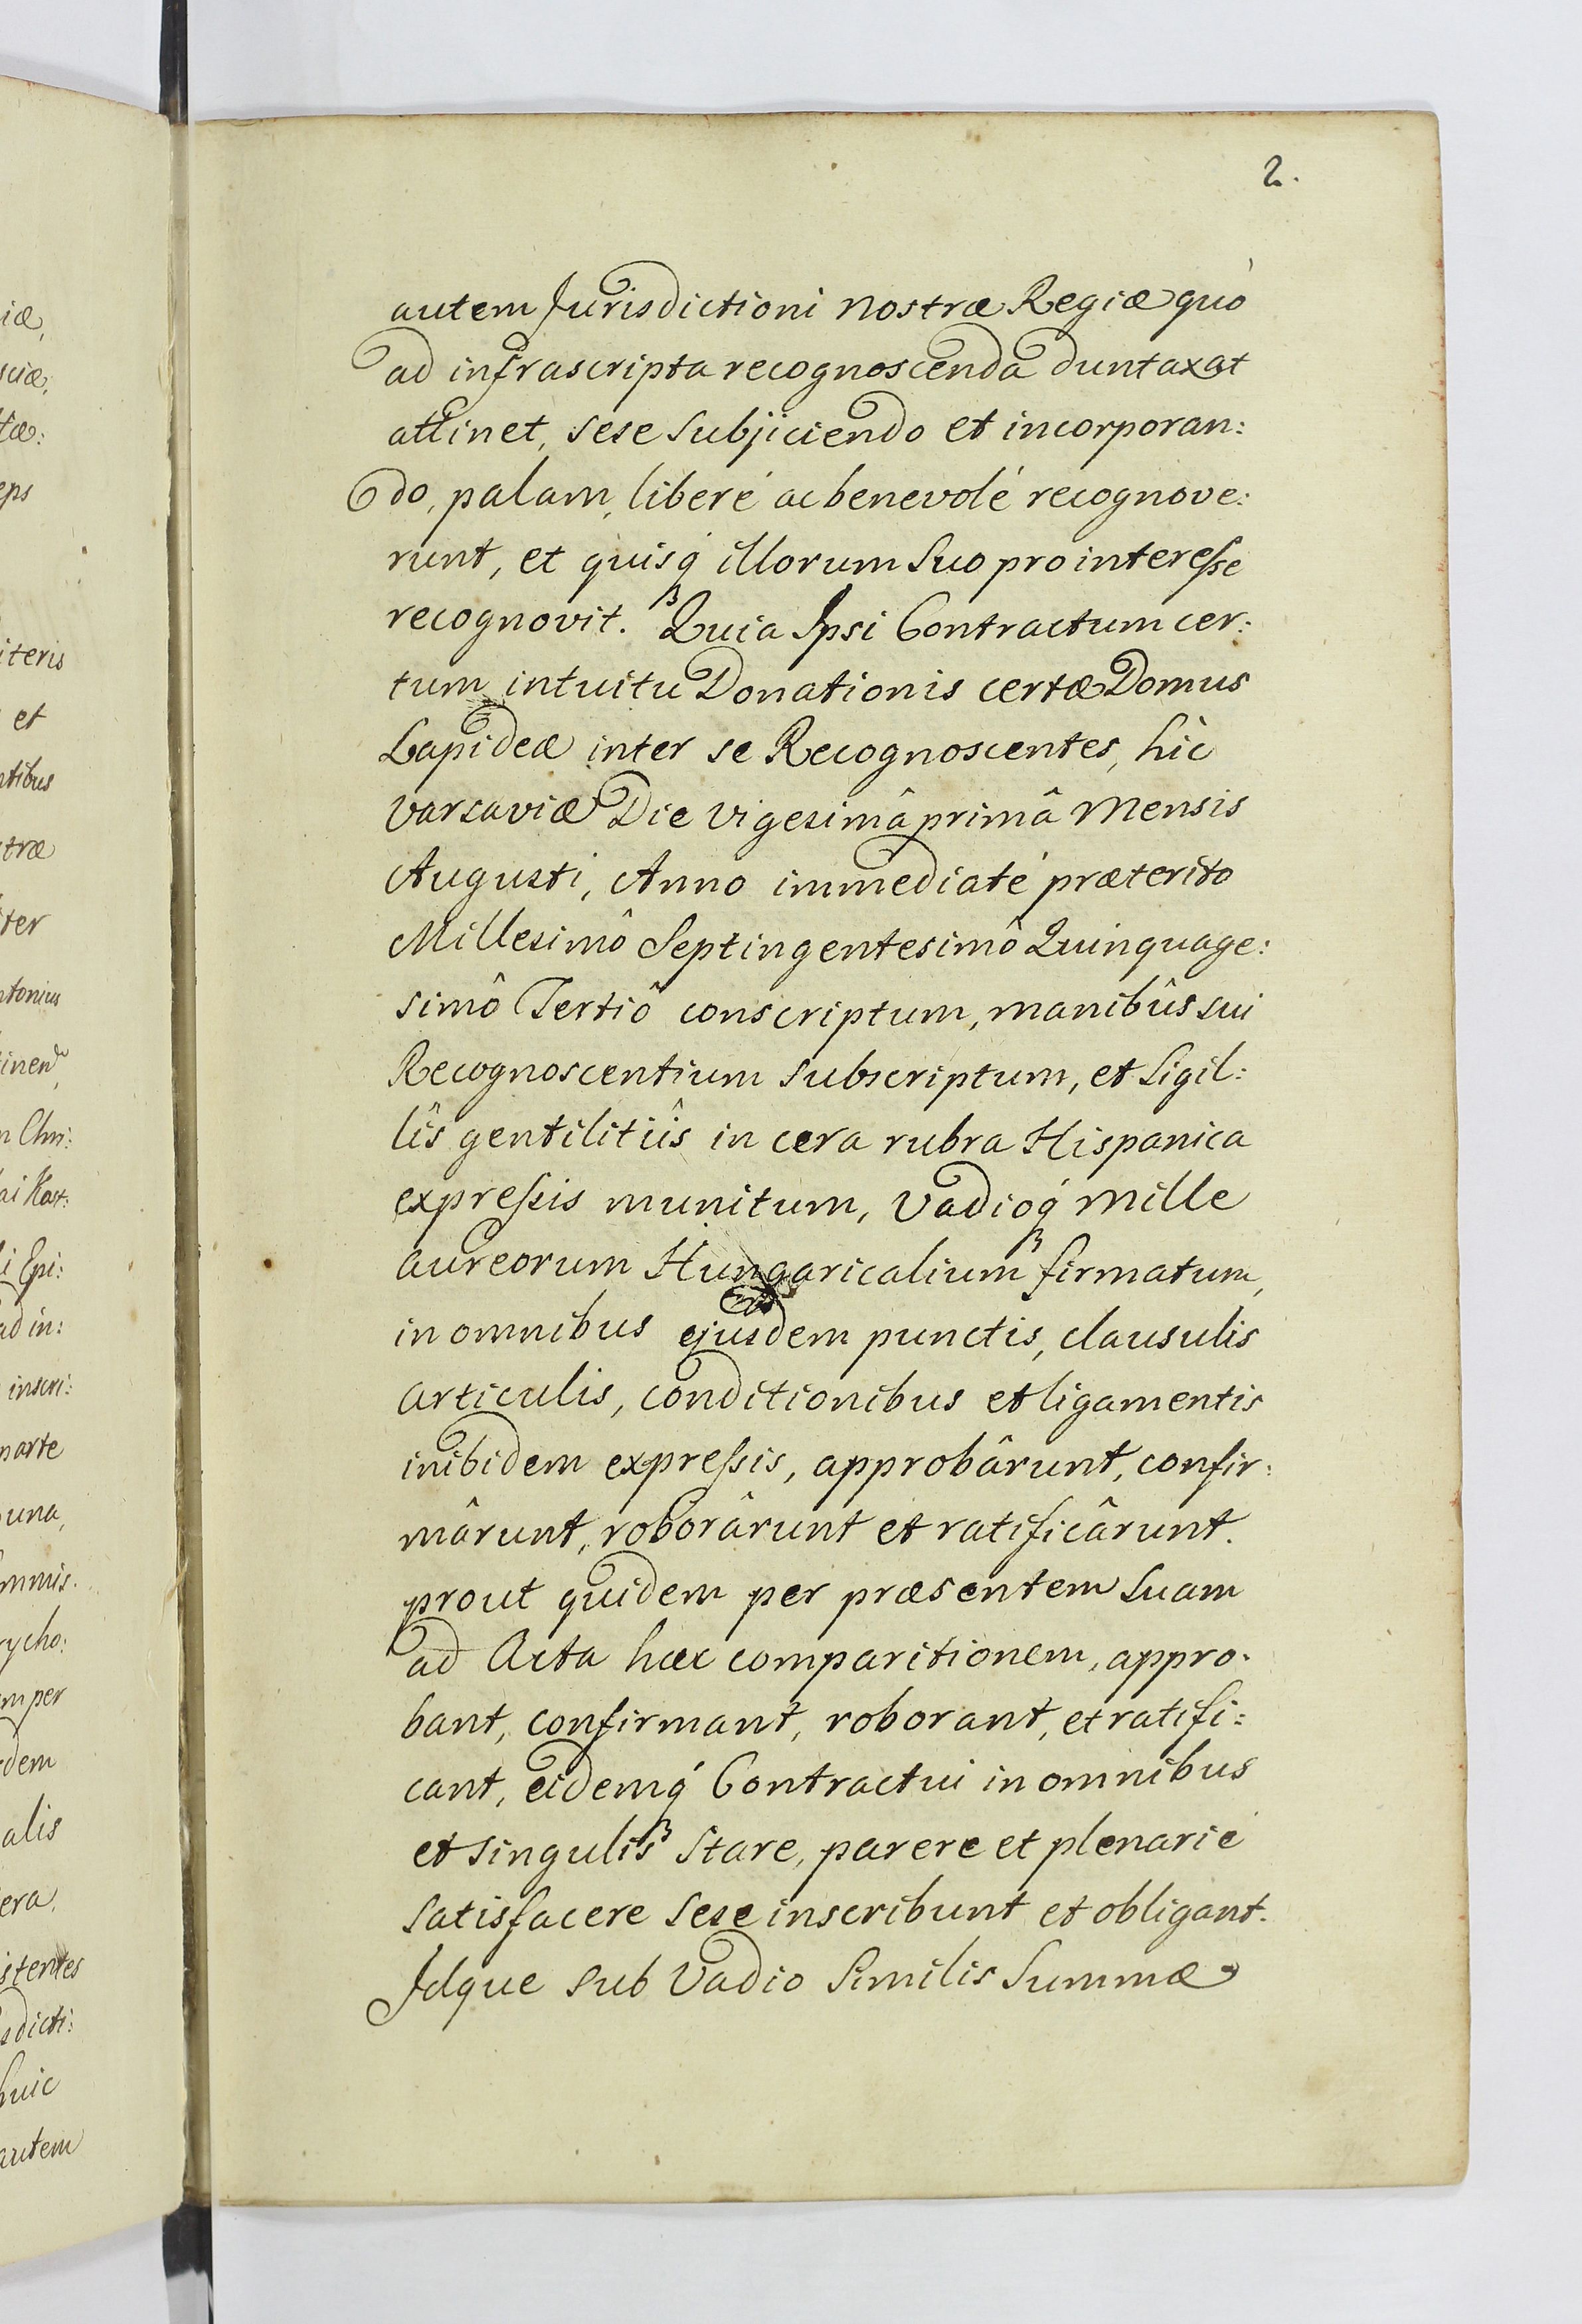 2.
autem Jurisdictioni nostræ Regiæ quò
ad infrascripta recognoscenda duntaxat
attinet, sese subjiciendo et incorporan:
do, palam, liberé ac benevolé recognove:
runt, et quisq́ illorum suo pro interesse
recognovit. Quia Ipsi Contractum cer:
tum intuitu Donationis certæ Domus
Lapideæ inter se Recognoscentes, hìc
Varsaviæ Die vigesimâ primâ Mensis
Augusti, Anno immediaté præterito
Millesimô Septingentesimô Quinquage:
simô Tertiô conscriptum, manibûs sui
Recognoscentium subscriptum, et sigil:
lîs gentilitiîs in cera rubra Hispanica
expressis munitum, Vadioq́ Mille
aureorum Hungaricalium firmatum,
in omnibus ejusdem punctis, clausulis
articulis, conditionibus et ligamentis
inibidem expressis, approbârunt, confir:
mârunt, roborârunt et ratificârunt.
prout quidem per præsentem suam
ad Acta hæc comparitionem, appro:
bant, confirmant, roborant, et ratifi:
cant, eidemq́ Contractui in omnibus
et singulis stare, parere et plenarié
satisfacere sese inscribunt et obligant.
Idque sub Vadio similis summæ
iæ,
sciæ,
tæ:
eps
iteris
et
ntibus
træ
ter
ntonius
n Chri:
ai Kast:
i Epi:
ad in:
inscri:
parte
una,
mnis.
rycho:
m per
dem
alis
era,
istentes
sdicti:
huic
autem